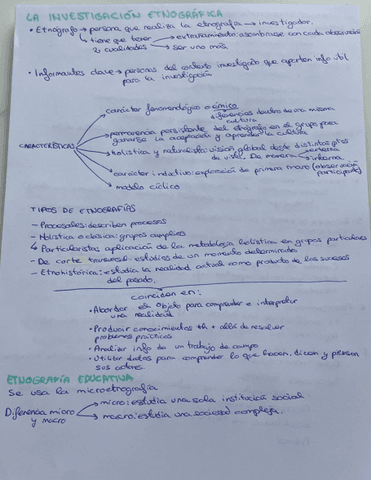 LA INVESTIGACIÓN ETNOGRÁFICA
• Etnógrafo → persona que realiza la etnografía → investigador.
↳ tiene que tener 2 cualidades
→ extrañamiento: asombrarse con cada observación
→ ser uno más.
• Informantes clave → personas del contexto investigado que aportan info útil
para la investigación
CARACTERÍSTICAS
carácter fenomenológico o émico
diferencias dentro de una misma
cultura
permanencia persistente del etnógrafo en el grupo para
ganarse la aceptación y aprender la cultura
holística y naturalista: visión global desde distintos ptos
de vista. De manera
externa
interna.
carácter inductivo: exploración de primera mano (observación
participante)
modelo cíclico
TIPOS DE ETNOGRAFÍAS
- Procesales: describen procesos
- Holística o clásica: grupos amplios
↳ Particularista: aplicación de la metodología holística en grupos particulares
- De corte transversal: estudios de un momento determinado
- Etnohistórica: estudia la realidad actual como producto de los sucesos
del pasado.
coinciden en:
• Abordar el objeto para comprender e interpretar
una realidad
• Producir conocimientos th + allá de resolver
problemas prácticos
• Analizar info de un trabajo de campo
• Utilizar datos para comprender lo que hacen, dicen y piensan
sus actores.
ETNOGRAFÍA EDUCATIVA
Se usa la microetnografía
Diferencia micro
y macro
micro: estudia una sola institución social
macro: estudia una sociedad compleja.